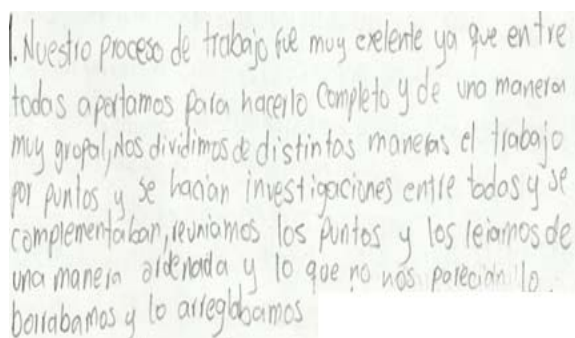 1. Nuestro proceso de trabajo fue muy exelente ya que entre
todas aportamos para hacerlo completo y de una maneron
muy gropal, Nos dividimos de distintas maneras el trabajo
por puntos y se hacian investigaciones entre todas y se
complementaban, reuniamos los puntos y los leiamos de
una manera ordenada y lo que no nos parecian lo
borrabamos y lo arreglabamos